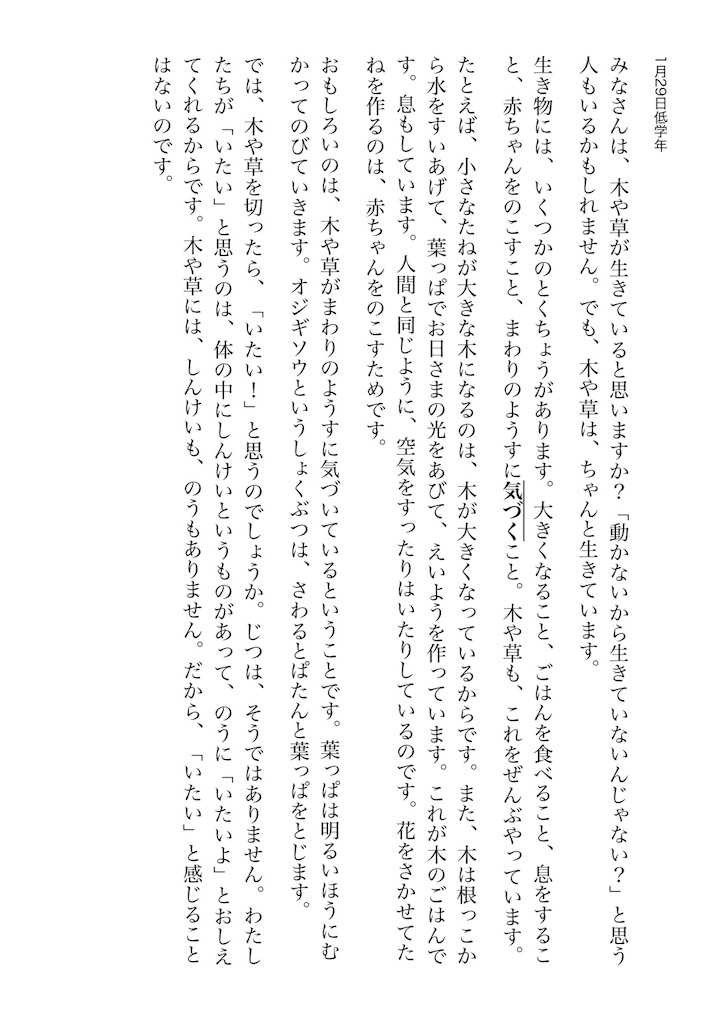 1月29日低学年
みなさんは、木や草が生きていると思いますか?「動かないから生きていないんじゃない?」と思う
人もいるかもしれません。でも、木や草は、ちゃんと生きています。
生き物には、いくつかのとくちょうがあります。大きくなること、ごはんを食べること、息をするこ
と、赤ちゃんをのこすこと、まわりのようすに気づくこと。木や草も、これをぜんぶやっています。
たとえば、小さなたねが大きな木になるのは、木が大きくなっているからです。また、木は根っこか
ら水をすいあげて、葉っぱでお日さまの光をあびて、えいようを作っています。これが木のごはんで
す。息もしています。人間と同じように、空気をすったりはいたりしているのです。花をさかせてた
ねを作るのは、赤ちゃんをのこすためです。
おもしろいのは、木や草がまわりのようすに気づいているということです。葉っぱは明るいほうにむ
かってのびていきます。オジギソウというしょくぶつは、さわるとぱたんと葉っぱをとじます。
では、木や草を切ったら、「いたい!」と思うのでしょうか。じつは、そうではありません。わたし
たちが「いたい」と思うのは、体の中にしんけいというものがあって、のうに「いたいよ」とおしえ
てくれるからです。木や草には、しんけいも、のうもありません。だから、「いたい」と感じること
はないのです。